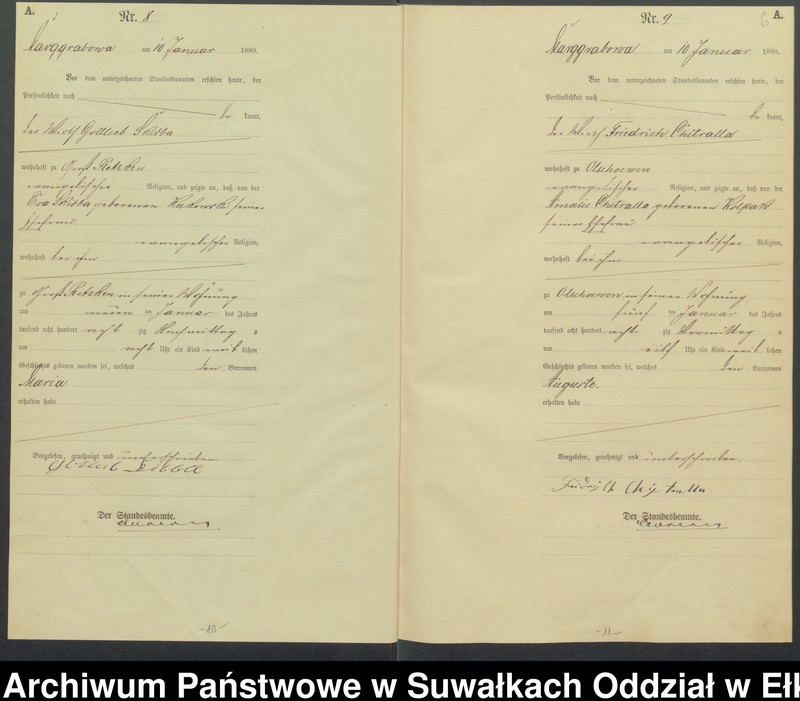 A.
Nr. 8
Marggrabowa am 10 Januar 1880.
Vor dem unterzeichneten Standesbeamten erschien heute, der
Persönlichkeit nach
be kannt,
der Wirth Gottlieb Skibba
wohnhaft zu Groß Retzken
evangelischer Religion, und zeigte an, daß von der
Eva Skibba geborenen seiner
Ehefrau
evangelischer Religion,
wohnhaft bei ihm
zu Groß Retzken in seiner Wohnung
am neun ten Januar des Jahres
tausend acht hundert acht zig Nachmittag s
um acht Uhr ein Kind weib lichen
Geschlechts geboren worden sei, welches den Vornamen
Maria
erhalten habe
Vorgelesen, genehmigt und unterschrieben
Gottlieb Skibba
Der Standesbeamte.
-10-
Nr. 9
6 A.
Marggrabowa am 10 Januar 1880.
Vor dem unterzeichneten Standesbeamten erschien heute, der
Persönlichkeit nach
be kannt,
der Wirth Friedrich Chitralla
wohnhaft zu Olschoewen
evangelischer Religion, und zeigte an, daß von der
Amalie Chitralla geborenen Kolpak
seiner Ehefrau
evangelischer Religion,
wohnhaft bei ihm
zu Olschoewen in seiner Wohnung
am fünf ten Januar des Jahres
tausend acht hundert acht zig Vormittag s
um elf Uhr ein Kind weib lichen
Geschlechts geboren worden sei, welches den Vornamen
Auguste.
erhalten habe
Vorgelesen, genehmigt und unterschrieben.
Der Standesbeamte.
-11-
Archiwum Państwowe w Suwałkach Oddział w Ełk